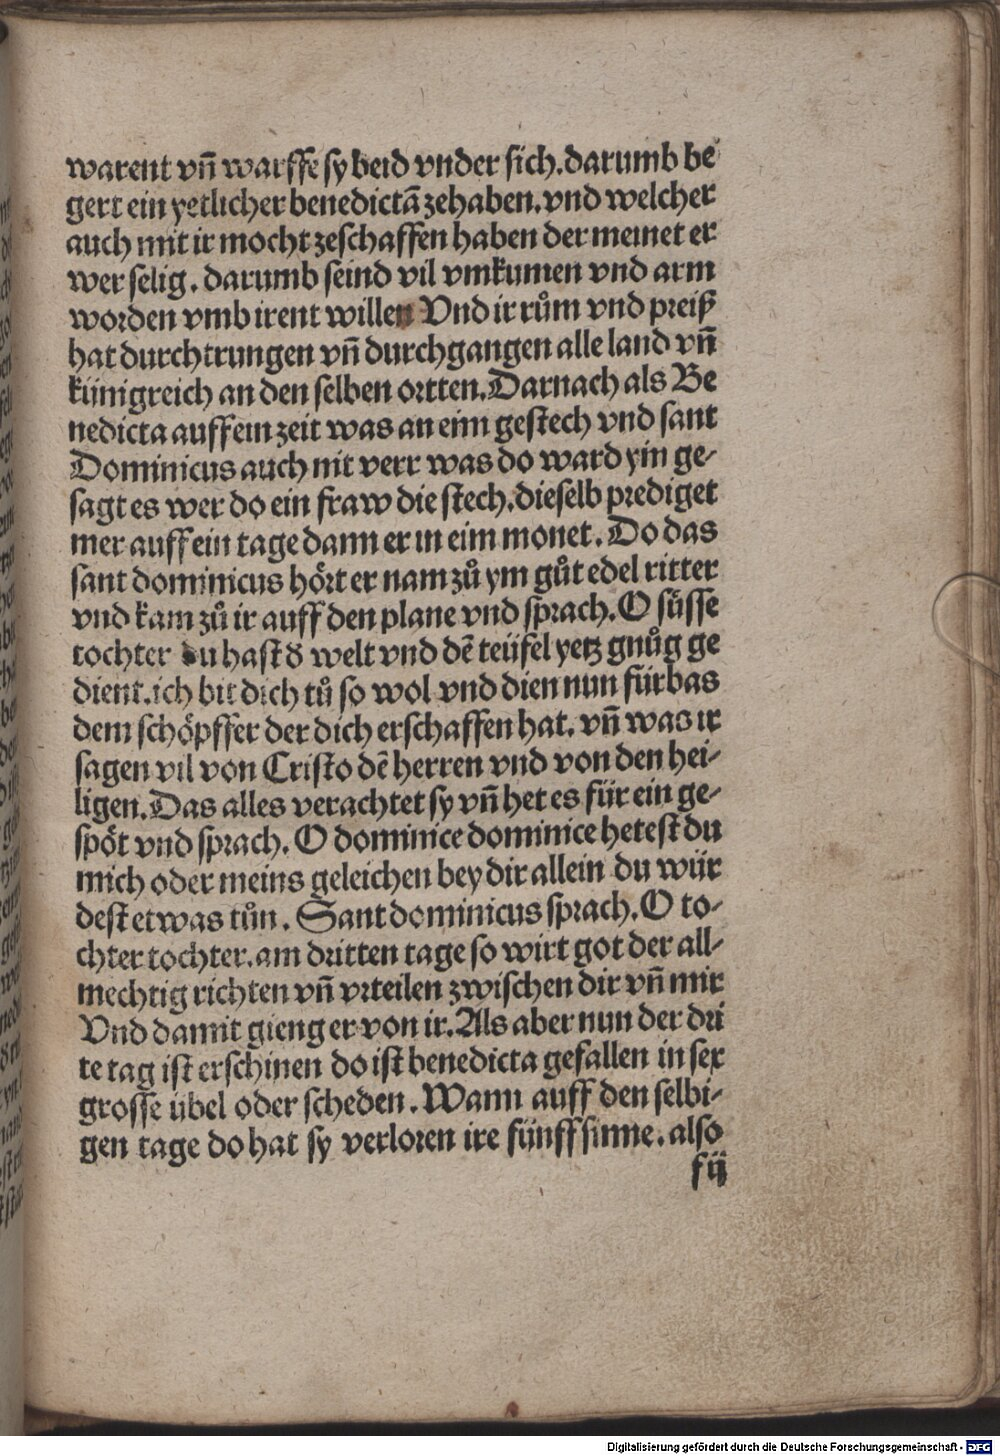 warent vn̄ warffe sy beid vnder sich. darumb be
gert ein yetlicher benedictā zehaben. vnd welcher
auch mit ir mocht zeschaffen haben der meinet er
wer selig. darumb seind vil vmkumen vnd arm
worden vmb irent willen Vnd ir rům vnd preiß
hat durchtrungen vn̄ durchgangen alle land vn̄
künigreich an den selben ortten. Darnach als Be
nedicta auff ein zeit was an eim gestech vnd sant
Dominicus auch nit verr was do ward yin ge-
sagt es wer do ein fraw die stech. dieselb prediget
mer auff ein tage dann er in eim monet. Do das
sant dominicus hört er nam zů ym gůt edel ritter
vnd kam zů ir auff den plane vnd sprach. O süsse
tochter du hast d̕ welt vnd dē teüfel yetz gnůg ge
dient. ich bit dich tů so wol vnd dien nun fürbas
dem schöpffer der dich erschaffen hat. vn̄ was ir
sagen vil von Cristo dē herren vnd von den hei-
ligen. Das alles verachtet sy vn̄ het es für ein ge-
spöt vnd sprach. O dominice dominice hetest du
mich oder meins geleichen bey dir allein du wür
dest etwas tůn. Sant dominicus sprach. O to-
chter tochter. am dritten tage so wirt got der all-
mechtig richten vn̄ vrteilen zwischen dir vn̄ mir
Vnd damit gieng er von ir. Als aber nun der dri
te tag ist erschinen do ist benedicta gefallen in sex
grosse übel oder scheden. Wann auff den selbi-
gen tage do hat sy verloren ire fünff sinne. also
f ij
Digitalisierung gefördert durch die Deutsche Forschungsgemeinschaft - DFG